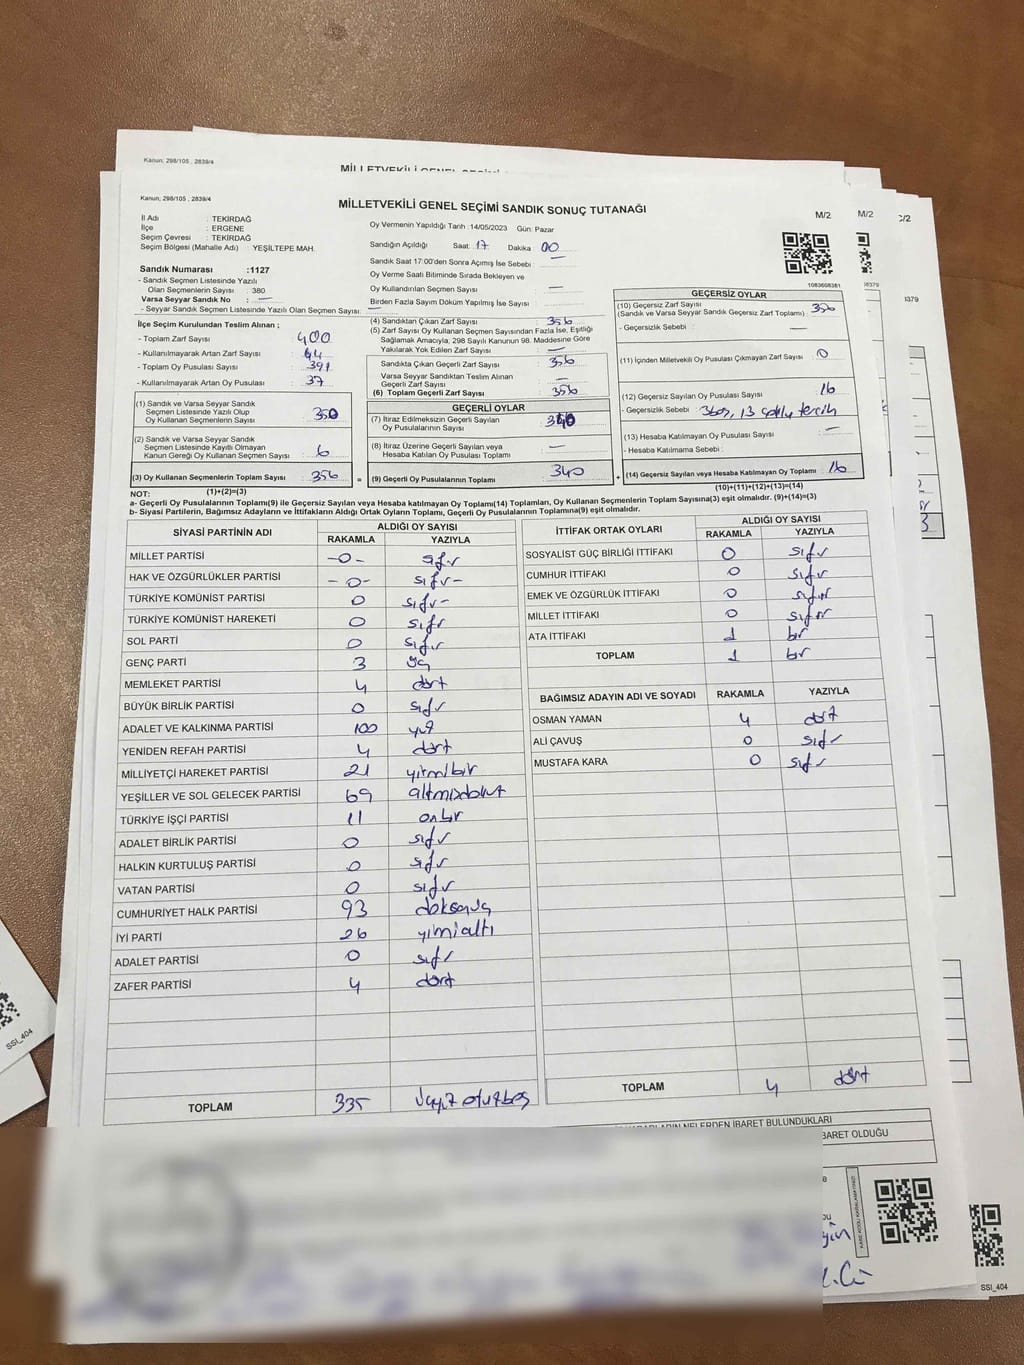 Kanun; 298/105 , 2839/4
Kanun; 298/105 , 2839/4
MİLLETVEKİLİ GENEL SEÇİMİ SANDIK SONUÇ TUTANAĞI
M/2
M/2
C/2
İl Adı : TEKİRDAĞ
İlçe : ERGENE
Seçim Çevresi : TEKİRDAĞ
Seçim Bölgesi (Mahalle Adı) : YEŞİLTEPE MAH.
Sandık Numarası :1127
- Sandık Seçmen Listesinde Yazılı
Olan Seçmenlerin Sayısı : 380
Varsa Seyyar Sandık No : —
- Seyyar Sandık Seçmen Listesinde Yazılı Olan Seçmen Sayısı: —
Oy Vermenin Yapıldığı Tarih :14/05/2023 Gün: Pazar
Sandığın Açıldığı Saat: 17 Dakika 00
Sandık Saat 17:00'den Sonra Açımış İse Sebebi : —
Oy Verme Saati Bitiminde Sırada Bekleyen ve
Oy Kullandırılan Seçmen Sayısı : —
Birden Fazla Sayım Döküm Yapılmış İse Sayısı : —
1083608381
İlçe Seçim Kurulundan Teslim Alınan ;
- Toplam Zarf Sayısı : 400
- Kullanılmayarak Artan Zarf Sayısı : 44
- Toplam Oy Pusulası Sayısı : 391
- Kullanılmayarak Artan Oy Pusulası : 37
(1) Sandık ve Varsa Seyyar Sandık
Seçmen Listesinde Yazılı Olup
Oy Kullanan Seçmenlerin Sayısı : 350
(2) Sandık ve Varsa Seyyar Sandık
Seçmen Listesinde Kayıtlı Olmayan
Kanun Gereği Oy Kullanan Seçmen Sayısı : 6
(3) Oy Kullanan Seçmenlerin Toplam Sayısı : 356
(1)+(2)=(3)
(4) Sandıktan Çıkan Zarf Sayısı : 356
(5) Zarf Sayısı Oy Kullanan Seçmen Sayısından Fazla İse, Eşitliği
Sağlamak Amacıyla, 298 Sayılı Kanunun 98. Maddesine Göre
Yakılarak Yok Edilen Zarf Sayısı : —
Sandıkta Çıkan Geçerli Zarf Sayısı : 356
Varsa Seyyar Sandıktan Teslim Alınan
Geçerli Zarf Sayısı : —
(6) Toplam Geçerli Zarf Sayısı : 356
GEÇERLİ OYLAR
(7) İtiraz Edilmeksizin Geçerli Sayılan
Oy Pusulalarının Sayısı : 340
(8) İtiraz Üzerine Geçerli Sayılan veya
Hesaba Katılan Oy Pusulası Toplamı : —
= (9) Geçerli Oy Pusulalarının Toplamı : 340 +
GEÇERSİZ OYLAR
(10) Geçersiz Zarf Sayısı
(Sandık ve Varsa Seyyar Sandık Geçersiz Zarf Toplamı) : 356
- Geçersizlik Sebebi : —
(11) İçinden Milletvekili Oy Pusulası Çıkmayan Zarf Sayısı : 0
(12) Geçersiz Sayılan Oy Pusulası Sayısı : 16
- Geçersizlik Sebebi : 3 boş, 13 çoklu tercih
(13) Hesaba Katılmayan Oy Pusulası Sayısı : —
- Hesaba Katılmama Sebebi :
(14) Geçersiz Sayılan veya Hesaba Katılmayan Oy Toplamı : 16
(10)+(11)+(12)+(13)=(14)
NOT:
a- Geçerli Oy Pusulalarının Toplamı(9) ile Geçersiz Sayılan veya Hesaba katılmayan Oy Toplamı(14) Toplamları, Oy Kullanan Seçmenlerin Toplam Sayısına(3) eşit olmalıdır. (9)+(14)=(3)
b- Siyasi Partilerin, Bağımsız Adayların ve İttifakların Aldığı Ortak Oyların Toplamı, Geçerli Oy Pusulalarının Toplamına(9) eşit olmalıdır.
SİYASİ PARTİNİN ADI ALDIĞI OY SAYISI
RAKAMLA YAZIYLA
MİLLET PARTİSİ -0- sıfır
HAK VE ÖZGÜRLÜKLER PARTİSİ -0- sıfır-
TÜRKİYE KOMÜNİST PARTİSİ 0 sıfır-
TÜRKİYE KOMÜNİST HAREKETİ 0 sıfır
SOL PARTİ 0 sıfır
GENÇ PARTİ 3 üç
MEMLEKET PARTİSİ 4 dört
BÜYÜK BİRLİK PARTİSİ 0 sıfır
ADALET VE KALKINMA PARTİSİ 100 yüz
YENİDEN REFAH PARTİSİ 4 dört
MİLLİYETÇİ HAREKET PARTİSİ 21 yirmibir
YEŞİLLER VE SOL GELECEK PARTİSİ 69 altmışdokuz
TÜRKİYE İŞÇİ PARTİSİ 11 onbir
ADALET BİRLİK PARTİSİ 0 sıfır
HALKIN KURTULUŞ PARTİSİ 0 sıfır
VATAN PARTİSİ 0 sıfır
CUMHURİYET HALK PARTİSİ 93 doksanüç
İYİ PARTİ 26 yirmialtı
ADALET PARTİSİ 0 sıfır
ZAFER PARTİSİ 4 dört
TOPLAM 335 üçyüz otuzbeş
İTTİFAK ORTAK OYLARI ALDIĞI OY SAYISI
RAKAMLA YAZIYLA
SOSYALİST GÜÇ BİRLİĞİ İTTİFAKI 0 sıfır
CUMHUR İTTİFAKI 0 sıfır
EMEK VE ÖZGÜRLÜK İTTİFAKI 0 sıfır
MİLLET İTTİFAKI 0 sıfır
ATA İTTİFAKI 1 bir
TOPLAM 1 bir
BAĞIMSIZ ADAYIN ADI VE SOYADI RAKAMLA YAZIYLA
OSMAN YAMAN 4 dört
ALİ ÇAVUŞ 0 sıfır
MUSTAFA KARA 0 sıfır
TOPLAM 4 dört
NELERDEN İBARET BULUNDUKLARI
BARET OLDUĞU
SSI_404
SSI_404